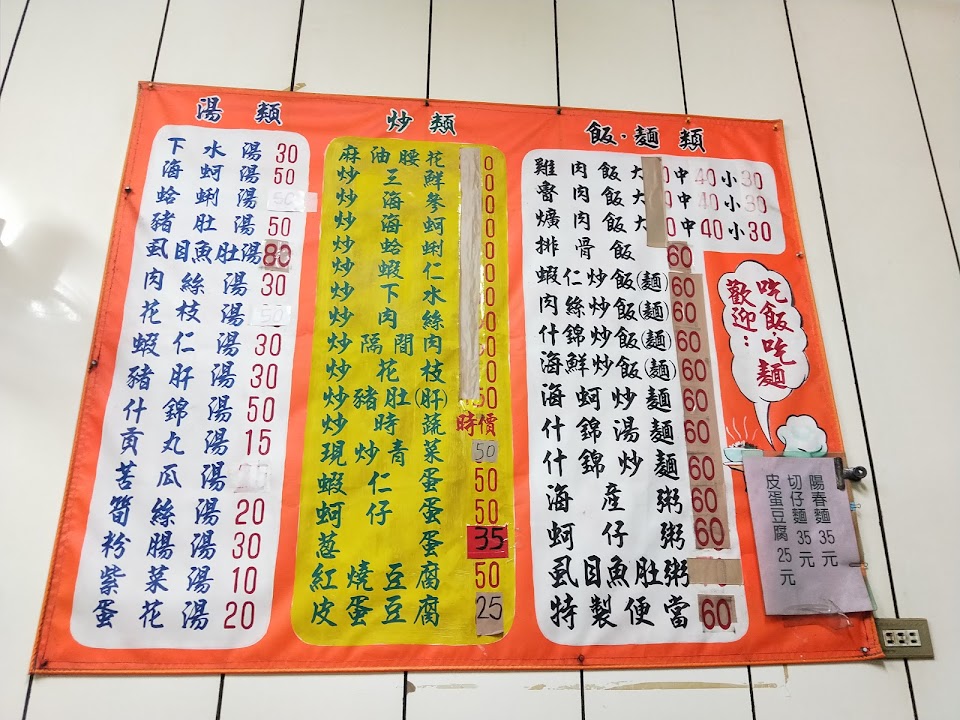 湯類
下水湯 30
海蚵湯 50
蛤蜊湯 50
豬肚湯 50
虱目魚肚湯 80
肉絲湯 30
花枝湯 50
蝦仁湯 30
豬肝湯 30
什錦湯 50
貢丸湯 15
苦瓜湯
筍絲湯 20
粉腸湯 30
紫菜湯 10
蛋花湯 20
炒類
麻油腰花 0
炒三鮮 0
炒海參 0
炒海蚵 0
炒蛤蜊 0
炒蝦仁 0
炒下水 0
炒肉絲 0
炒隔間肉 0
炒花枝 0
炒豬肚(肝) 50
炒時蔬 時價
現炒青菜 50
蝦仁蛋 50
蚵仔蛋 50
蔥蛋 35
紅燒豆腐 50
皮蛋豆腐 25
飯·麵類
雞肉飯大 0 中40 小30
魯肉飯大 0 中40 小30
爌肉飯大 0 中40 小30
排骨飯 60
蝦仁炒飯(麵) 60
肉絲炒飯(麵) 60
什錦炒飯(麵) 60
海鮮炒飯(麵) 60
海蚵炒麵 60
什錦湯麵 60
什錦炒麵 60
海產粥 60
蚵仔粥 60
虱目魚肚粥
特製便當 60
吃飯吃麵
歡迎：
陽春麵 35元
切仔麵 35元
皮蛋豆腐 25元